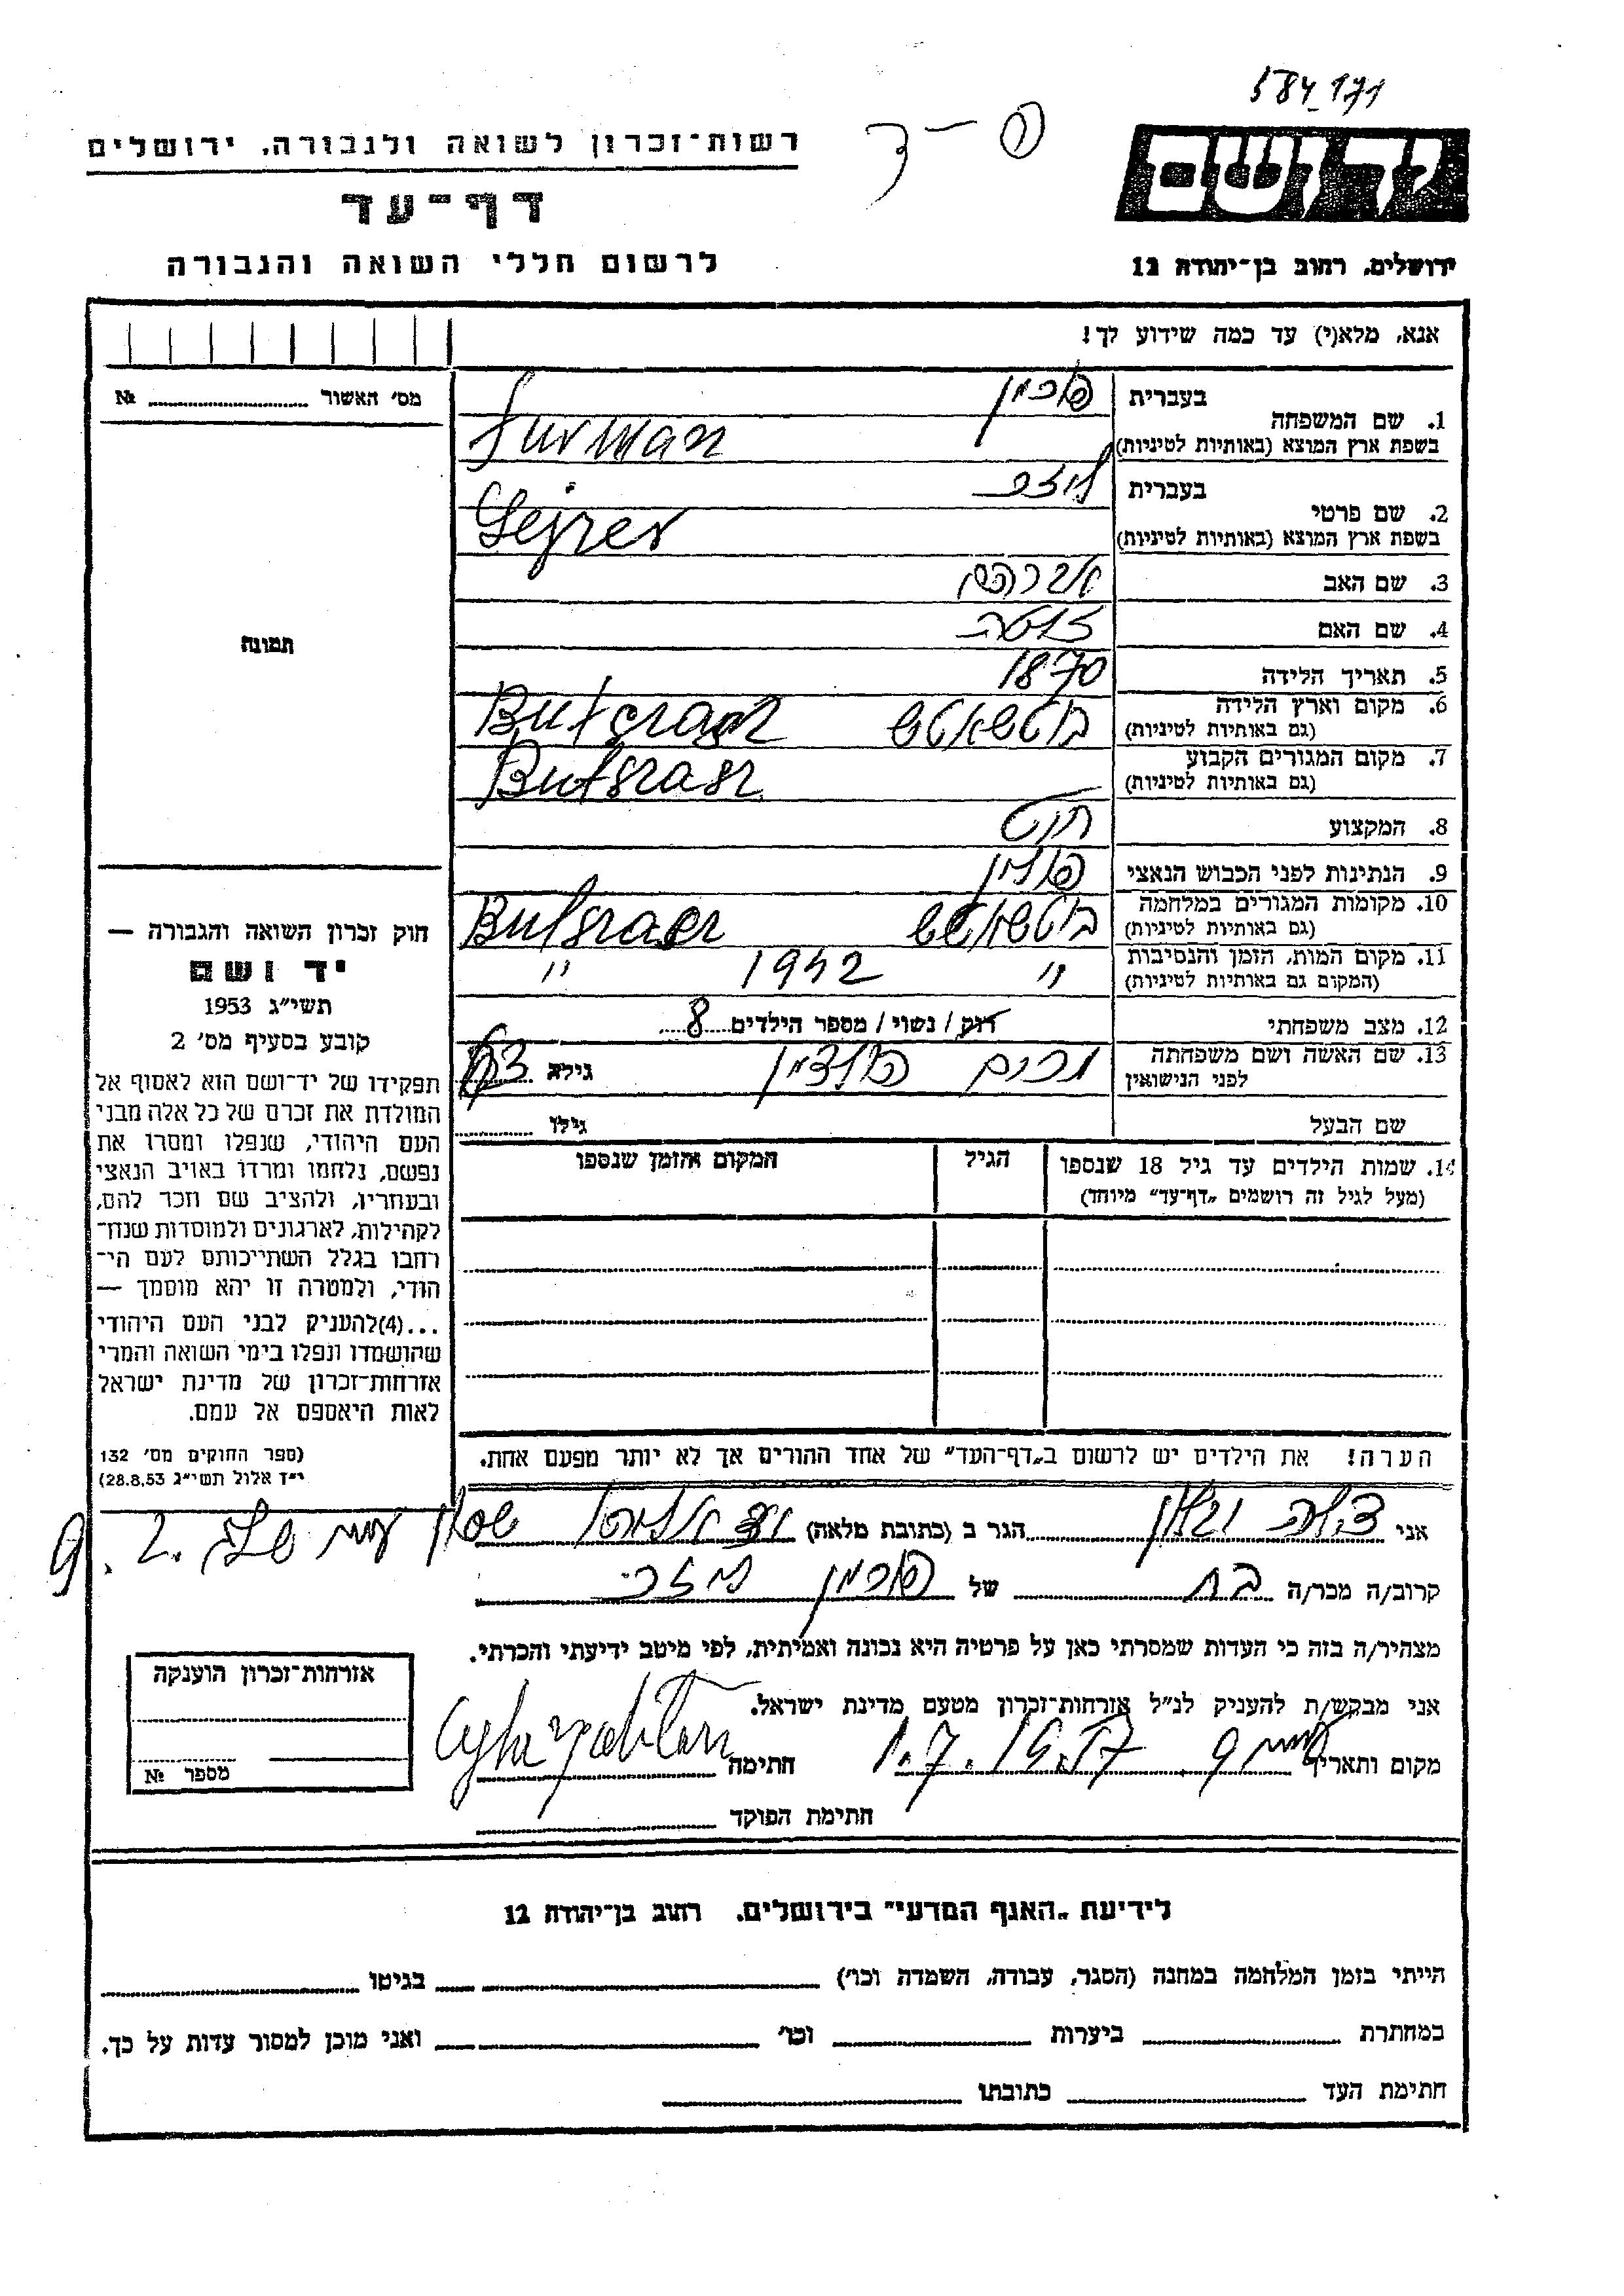 584-171
רשות־זכרון לשואה ולגבורה, ירושלים
דף־עד
לרשום חללי השואה והגבורה
יד ושם
ירושלים, רחוב בן־יהודה 12
אנא, מלא(י) עד כמה שידוע לך!
מס׳ האשור № 
תמונה
1. שם המשפחה
בעברית פורמן
בשפת ארץ המוצא (באותיות לטיניות) Furman
2. שם פרטי
בעברית לייזר
בשפת ארץ המוצא (באותיות לטיניות) Lejzer
3. שם האב אברהם
4. שם האם
5. תאריך הלידה 1870
6. מקום וארץ הלידה
(גם באותיות לטיניות)
7. מקום המגורים הקבוע
(גם באותיות לטיניות)
8. המקצוע
9. הנתינות לפני הכבוש הנאצי פולין
10. מקומות המגורים במלחמה
(גם באותיות לטיניות)
11. מקום המות, הזמן והנסיבות " 1942 "
(המקום גם באותיות לטיניות)
12. מצב משפחתי רוק / נשוי / מספר הילדים 8
13. שם האשה ושם משפחתה מרים גילה
לפני הנישואין
שם הבעל גילו
14. שמות הילדים עד גיל 18 שנספו הגיל המקום והזמן שנספו
(מעל לגיל זה רושמים „דף־עד״ מיוחד)
הערה! את הילדים יש לרשום ב„דף־העד״ של אחד ההורים אך לא יותר מפעם אחת.
חוק זכרון השואה והגבורה —
יד ושם
תשי״ג 1953
קובע בסעיף מס׳ 2
תפקידו של יד־ושם הוא לאסוף אל
המולדת את זכרם של כל אלה מבני
העם היהודי, שנפלו ומסרו את
נפשם, נלחמו ומרדו באויב הנאצי
ובעוזריו, ולהציב שם וזכר להם,
לקהילות, לארגונים ולמוסדות שנח־
רחבו בגלל השתייכותם לעם הי־
הודי, ולמטרה זו יהא מוסמך —
...(4)להעניק לבני העם היהודי
שהושמדו ונפלו בימי השואה והמרי
אזרחות־זכרון של מדינת ישראל
לאות היאספם אל עמם.
(ספר החוקים מס׳ 132
י״ד אלול תשי״ג 28.8.53)
אני הגר ב (כתובת מלאה)
קרוב/ה מכר/ה בת של פורמן לייזר
מצהיר/ה בזה כי העדות שמסרתי כאן על פרטיה היא נכונה ואמיתית, לפי מיטב ידיעתי והכרתי.
אני מבקש/ת להעניק לנ״ל אזרחות־זכרון מטעם מדינת ישראל.
מקום ותאריך 1.7.1957 חתימה
חתימת הפוקד
אזרחות־זכרון הוענקה
מספר №
לידיעת „האגף המדעי״ בירושלים, רחוב בן־יהודה 12
הייתי בזמן המלחמה במחנה (הסגר, עבודה, השמדה וכו׳) בגיטו
במחתרת ביערות וכו׳ ואני מוכן למסור עדות על כך.
חתימת העד כתובתו